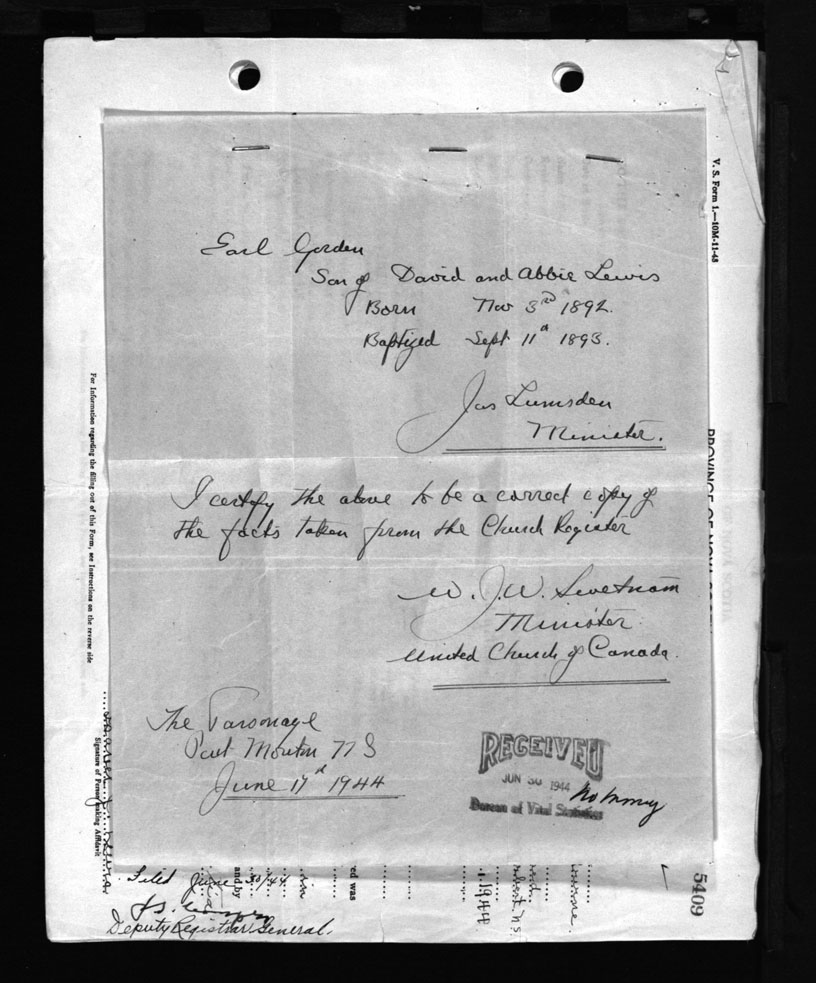 Earl Gorden
Son of David and Abbie Lewis
Born Nov 3rd 1892.
Baptized Sept 11th 1893.
Jas Lumsden
Minister.
I certify the above to be a correct copy of
the facts taken from the Church Register
W. J. W. Swetnam
Minister
United Church of Canada.
The Parsonage
Port Mouton N S
June 17th 1944
RECEIVED
JUN 30 1944
Bureau of Vital Statistics
No money
V. S. Form 1.—10M-11-43
PROVINCE OF NOVA
For Information regarding the filling out of this Form, see Instructions on the reverse side
Signature of Person making Affidavit
and by
ed was
1944
Filed June 30/44
Deputy Registrar General.
5409